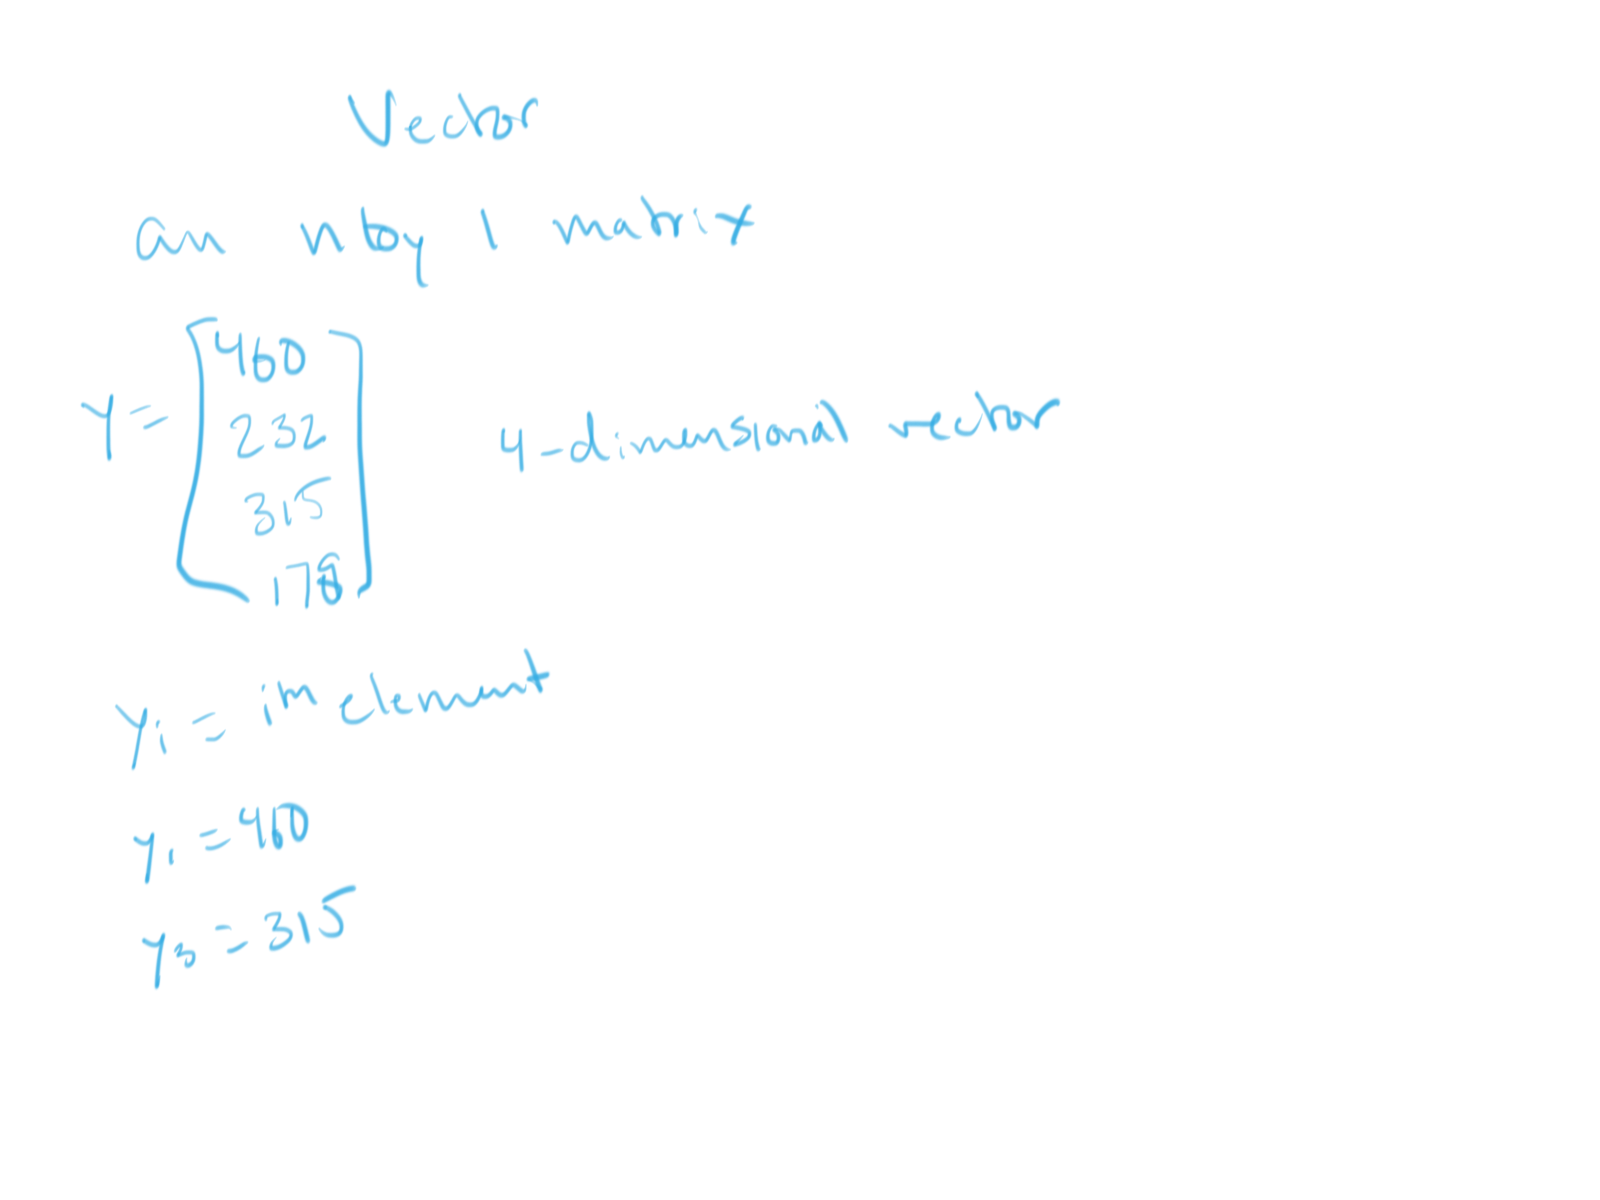 Vector
an n by 1 matrix
y = [460
232
315
178]
4-dimensional vector
yi = ith element
y1 = 460
y3 = 315